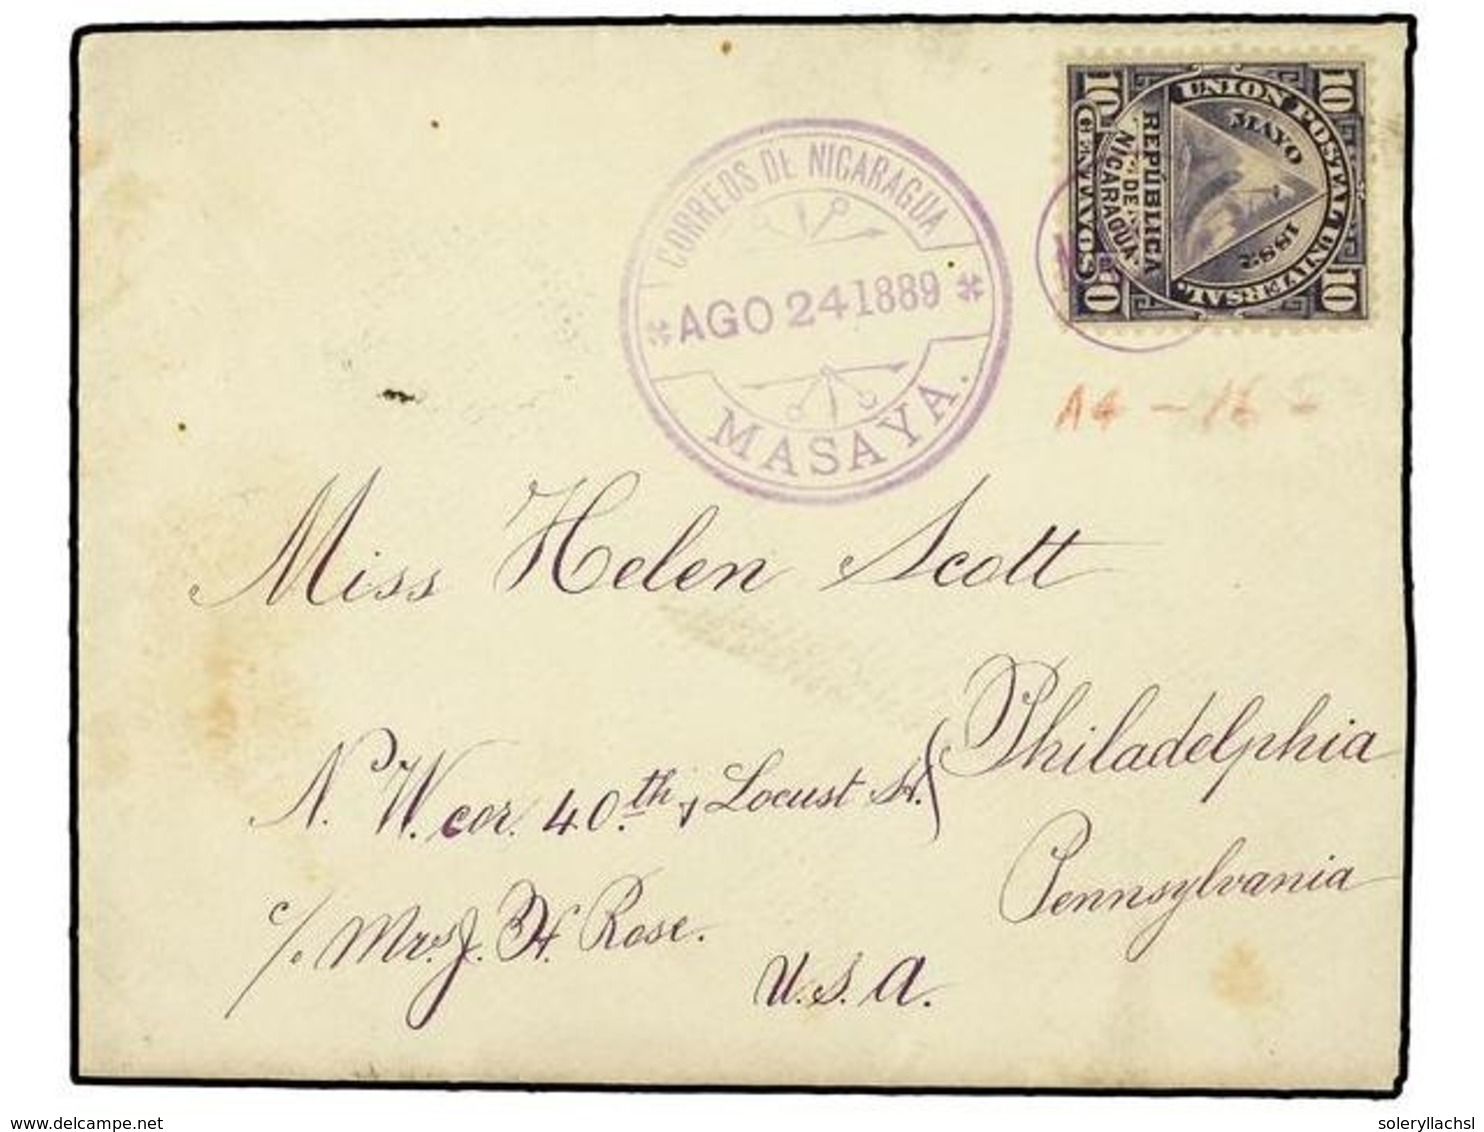 CORREOS DE NICARAGUA
AGO 24 1889
MASAYA.
UNION POSTAL UNIVERSAL.
MAYO 1882
REPÚBLICA
DE
NICARAGUA.
10 CENTAVOS 10
10 10
A4 - 16 -
Miss Helen Scott
N. W. cor. 40.th & Locust St. Philadelphia
Pennsylvania
c/o Mrs. J. H. Rose.
U.S.A.
www.delcampe.net
soleryllachsl